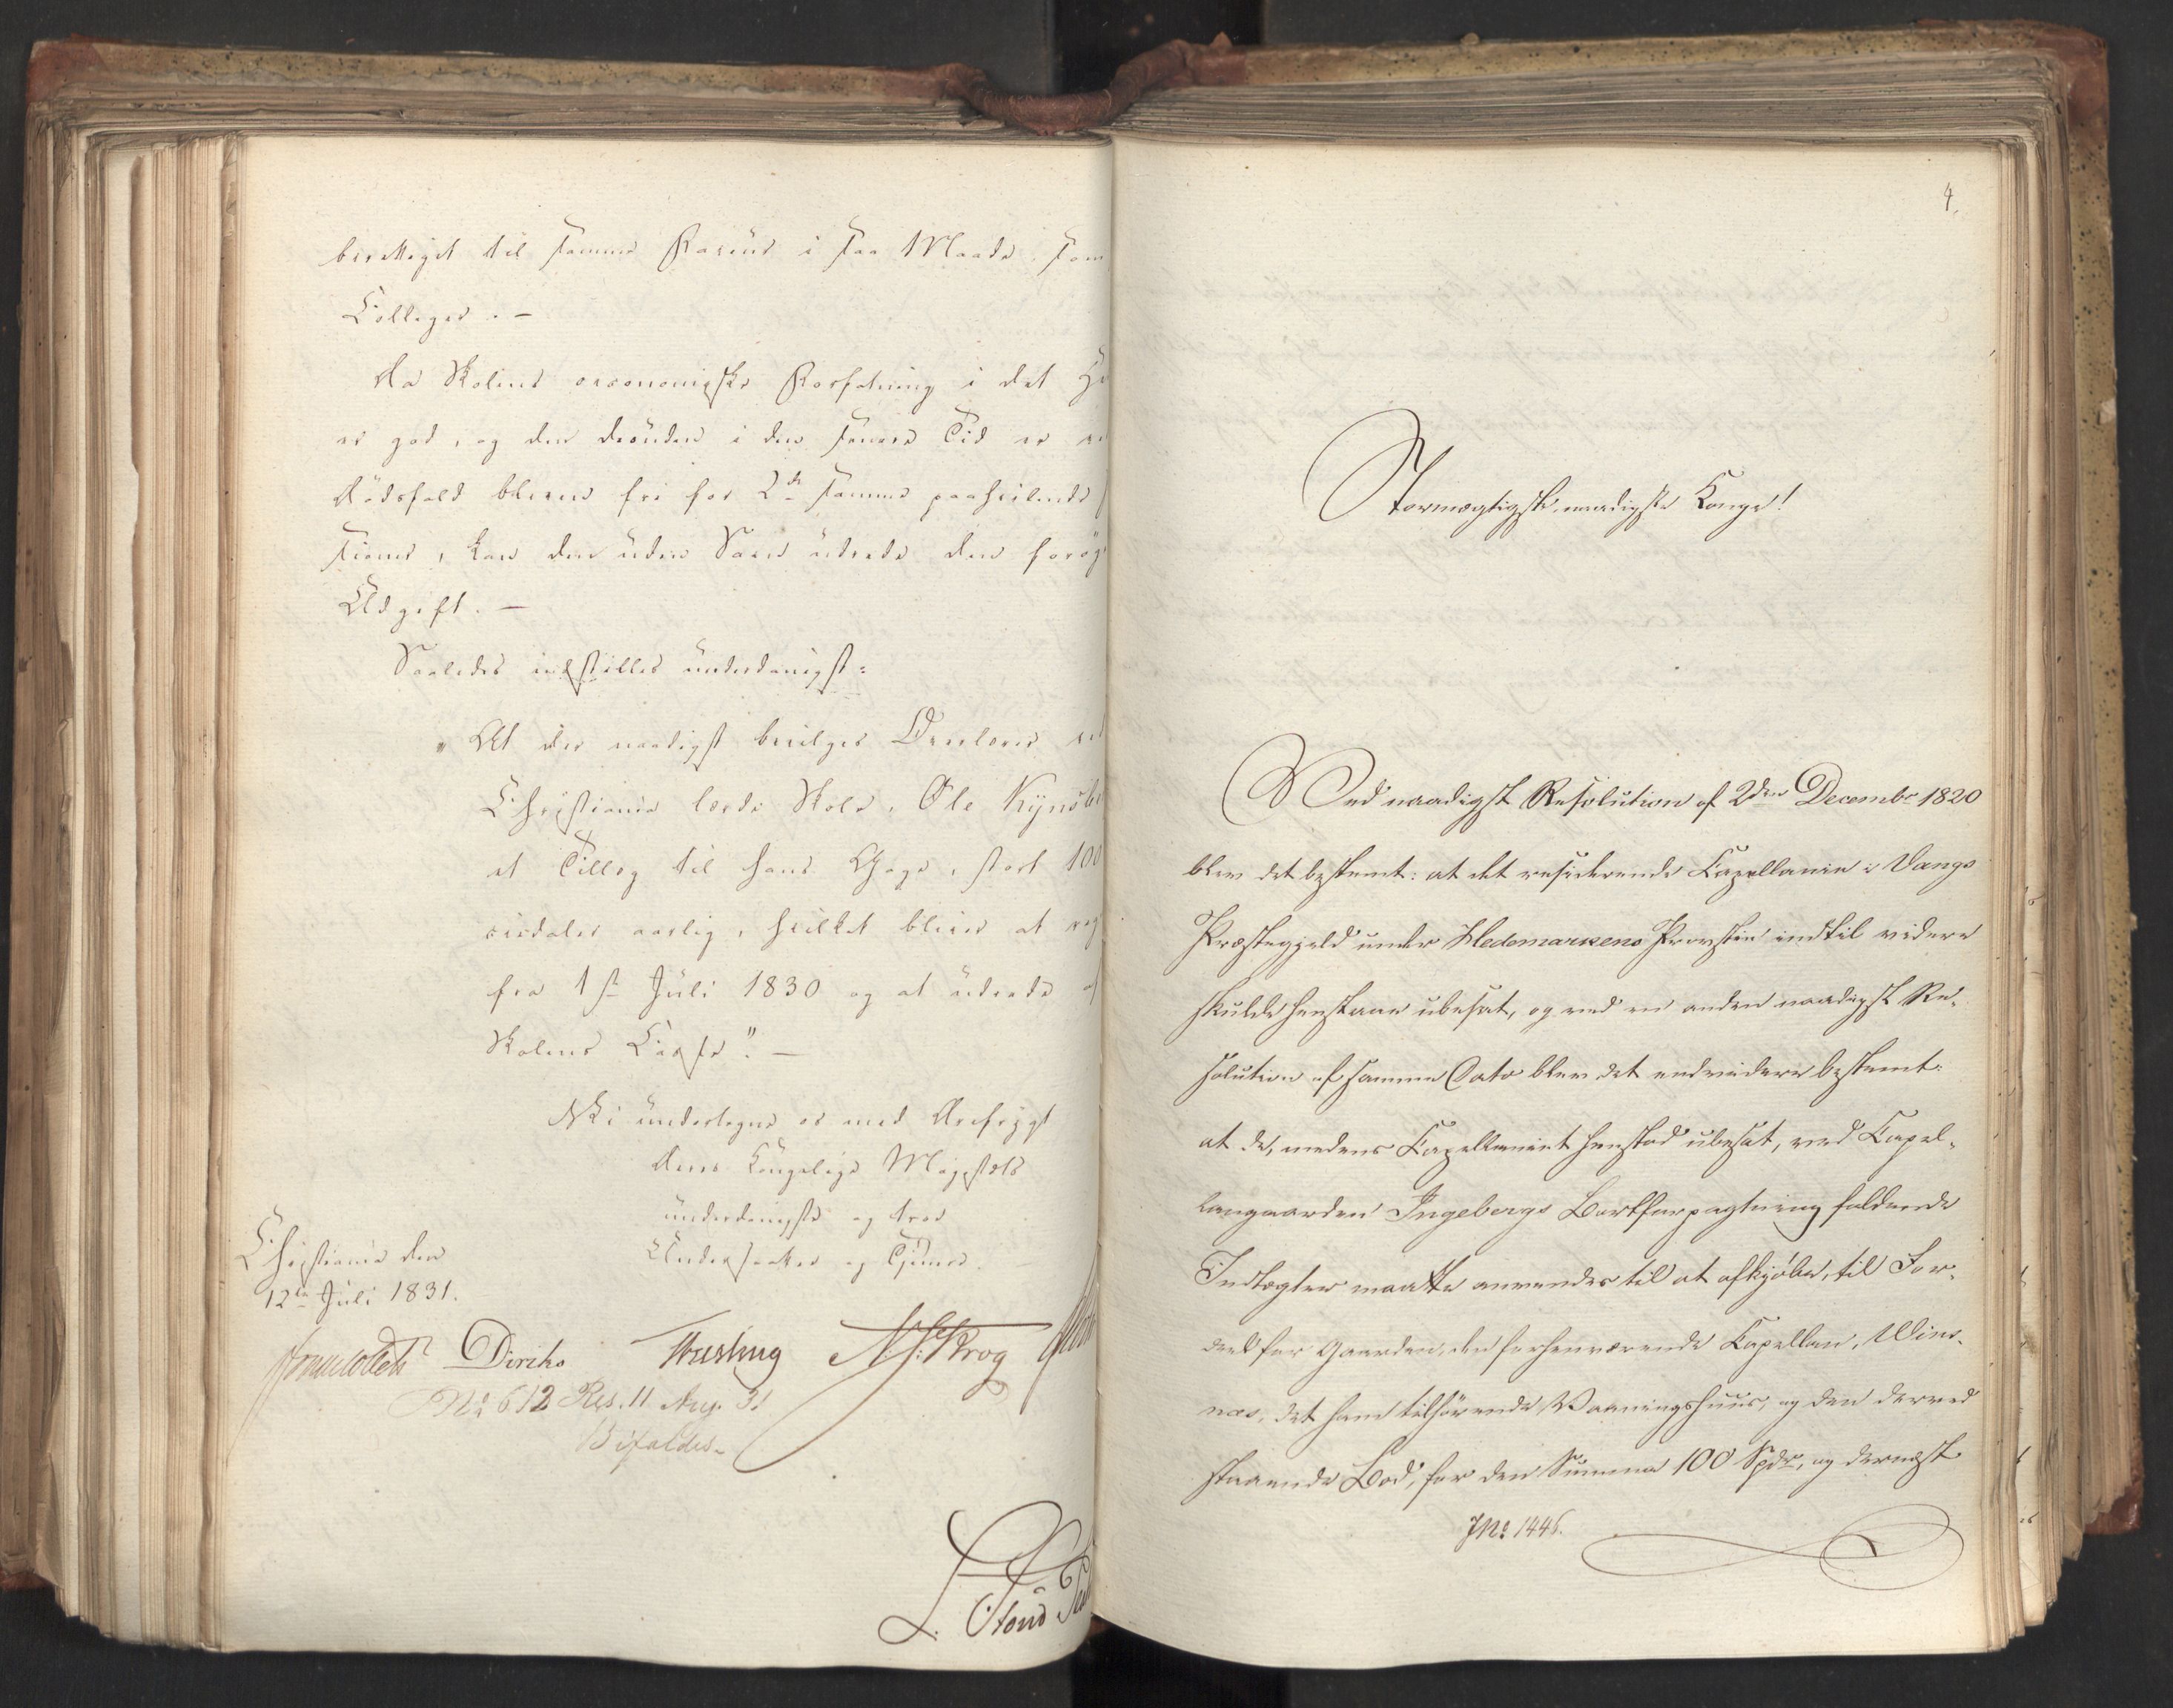 berettiget til samme Gavent i saa Maade, som
Colleger. —
Da Skolens oeconomiske Forfatning i det He
er god, og den desuden i den senere Tid er ve
Dödsfald bleven fri for 2de samme paahvilende
sioner, kan den uden Savn udrede den forög
Udgift. —
Saaledes indstilles underdanigst:
"At der naadigst bevilges Overlærer ved
Christiania lærde Skole, Ole
et Tillæg til hans Gage, stort 100
ciedaler aarlig, hvilket bliver at reg
fra 1ste Juli 1830 og at udrede af
Skolens Casse". —
Vi undertegne os med Ærefrygt
Deres Kongelige Majestæts
underdanigste og troe
Undersaatter og Tjenere.
Christiania den
12te Juli 1831.
Diriks Treschow Krog
No 612 Res. 11 Aug. 31
Bifaldes.
4.
Stormægtigste, naadigste Konge!
Ved naadigst Resolution af 2den Decembr 1820
blev det bestemt: at det residerende Capellanie i Vangs
Præstegjeld under Hedemarkens Provstie indtil videre
skulde henstaae ubesat, og ved en anden naadigst Re-
solution af samme Dato blev det endvidere bestemt:
at de, medens Capellaniet henstod ubesat, ved Capel-
langaarden Ingebergs Bortforpagtning faldende
Indtægter maatte anvendes til at afkjöbe, til For-
deel for Gaarden, den forhenværende Capellan, Wins-
næs, det ham tilhörende Vaaningshuus, og den derved
staaende Bod, for den Summa 100 Spdr, og dernæst
JNo 1446.